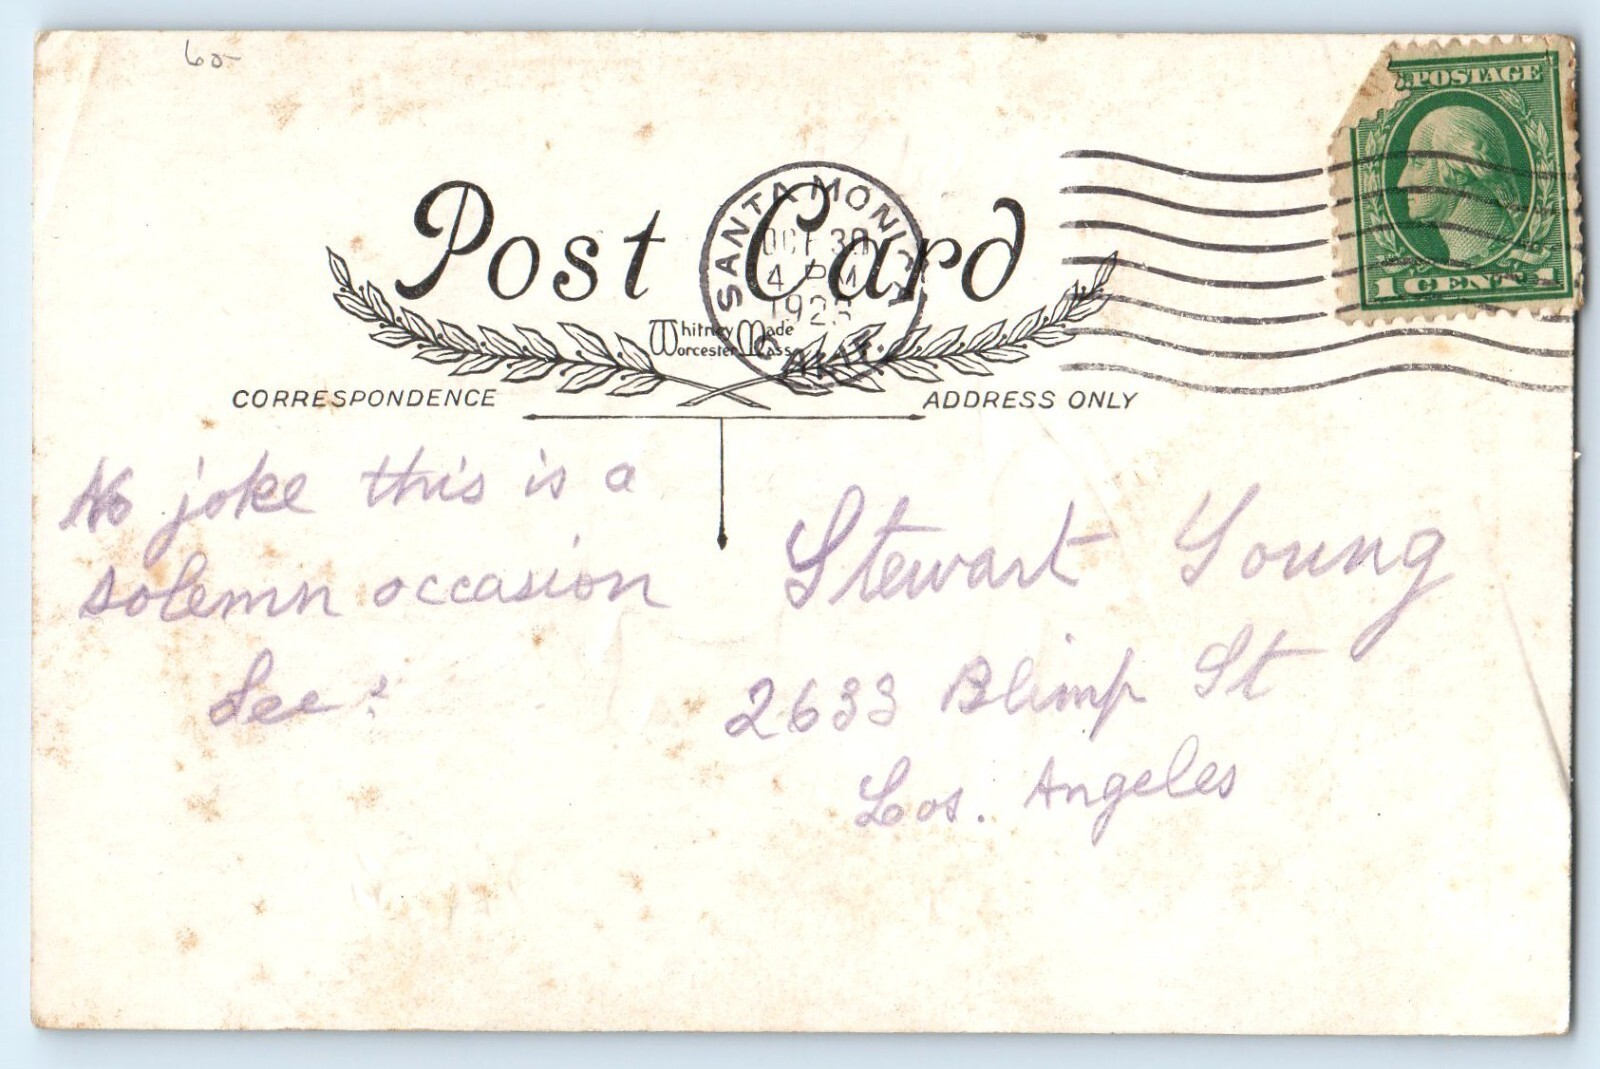 60-
POSTAGE
1 CENT 1
SANTA MONICA
OCT 30
4 PM
192
CALIF.
Post Card
Whitney Made
Worcester Mass
CORRESPONDENCE
ADDRESS ONLY
No joke this is a
solemn occasion
See?
Stewart Young
2633 Blimp St
Los. Angeles